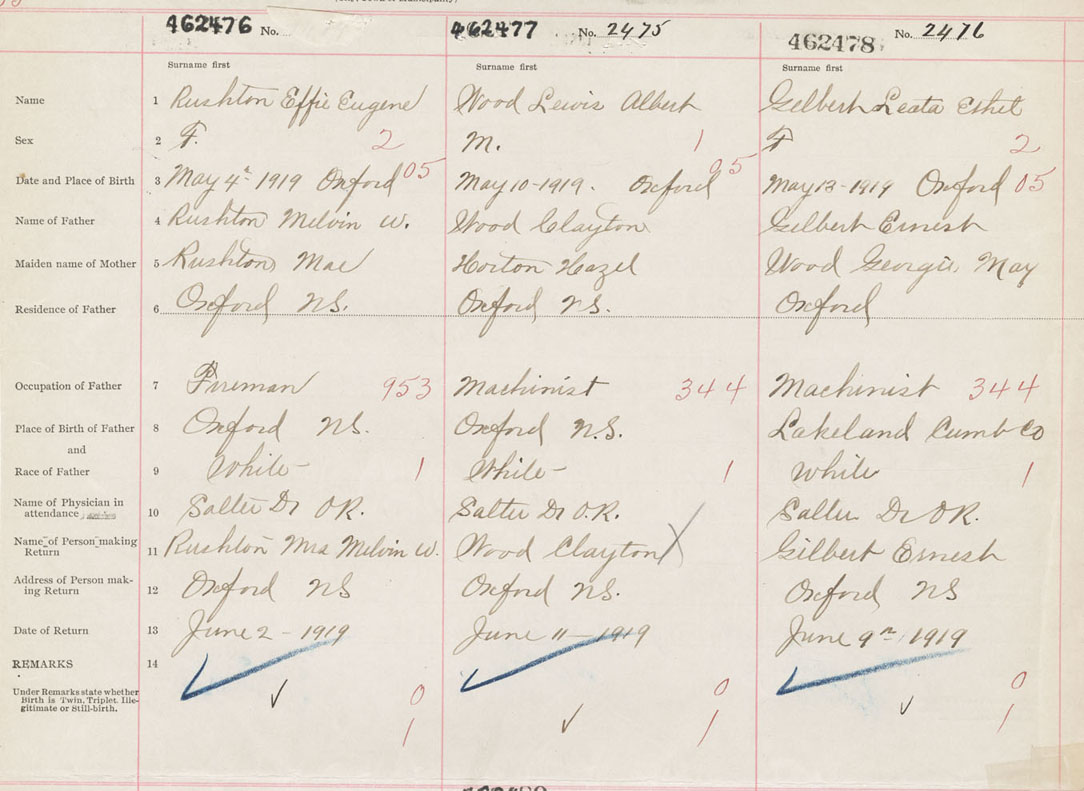 462476 No. 462477 No. 2475 462478 No. 2476
Surname first Surname first Surname first
Name 1 Rushton Effie Eugene Wood Lewis Albert Gilbert Leata Ethel
Sex 2 F. 2 M. 1 F 2
Date and Place of Birth 3 May 4th 1919 Oxford 05 May 10-1919. Oxford 05 May 13-1919 Oxford 05
Name of Father 4 Rushton Melvin W. Wood Clayton Gilbert Ernest
Maiden name of Mother 5 Rushton Mae Horton Hazel Wood Georgie May
Residence of Father 6 Oxford NS. Oxford NS. Oxford
Occupation of Father 7 Fireman 953 Machinist 344 Machinist 344
Place of Birth of Father 8 Oxford NS. Oxford N.S. Lakeland Cumb Co
and
Race of Father 9 White - 1 White - 1 White 1
Name of Physician in
attendance 10 Salter Dr OR. Salter Dr O.R. Salter Dr OR.
Name of Person making
Return 11 Rushton Mrs Melvin W. Wood Clayton X Gilbert Ernest
Address of Person mak-
ing Return 12 Oxford NS Oxford NS. Oxford NS
Date of Return 13 June 2 - 1919 June 11 - 1919 June 9th 1919
REMARKS 14
Under Remarks state whether
Birth is Twin, Triplet, Ille-
gitimate or Still-birth.
0 0 0
1 1 1